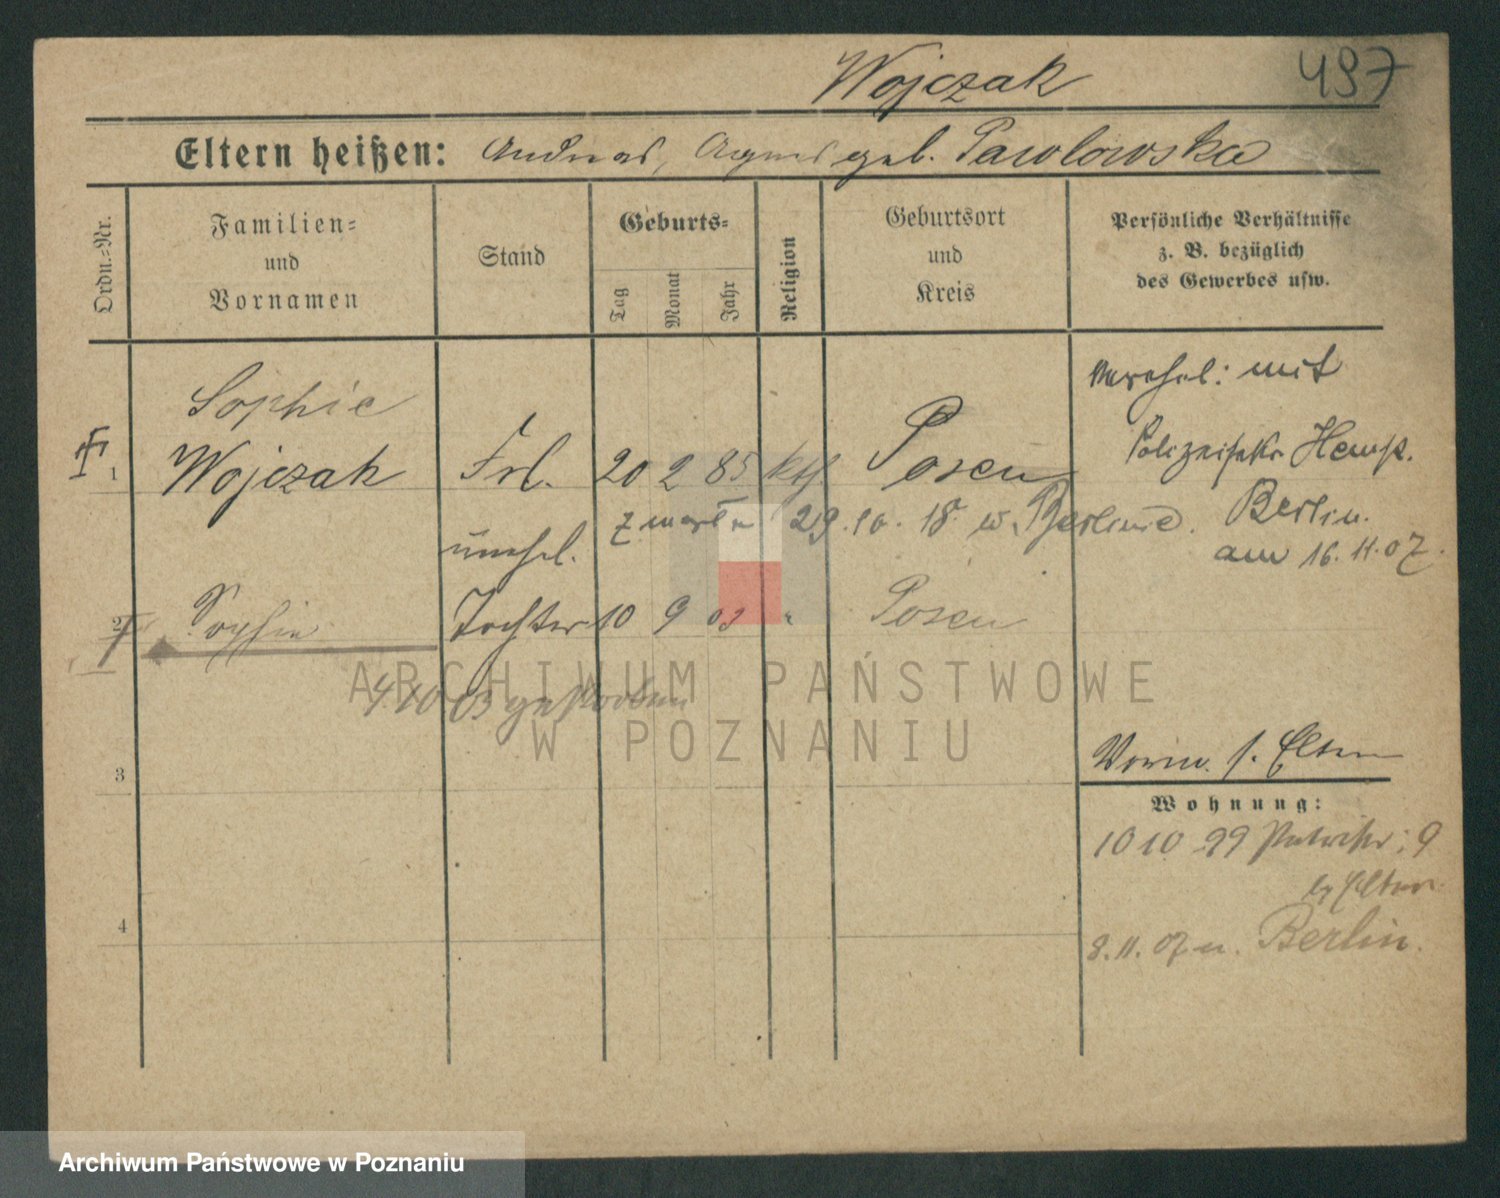 Wojczak
497
Eltern heißen: Andreas, Agnes geb. Pawlowska
Ordn.-Nr.
Familien- und Vornamen
Stand
Geburts-
Tag
Monat
Jahr
Religion
Geburtsort und Kreis
Persönliche Verhältnisse z. B. bezüglich des Gewerbes usw.
1
Sophie
Wojczak
Frl.
20 2 85 kth
Posen
zmarła 29.10.18. w Berlinie.
verehel: mit
Berlin.
am 16.11.07.
2
Sophie
unehel.
Tochter
10 9 03 "
Posen
4 10 03 gestorben
3
4
Vorm. s. Eltern
Wohnung:
10 10 99
9
b/ Eltern
8.11.07 n. Berlin.
ARCHIWUM PAŃSTWOWE
W POZNANIU
Archiwum Państwowe w Poznaniu